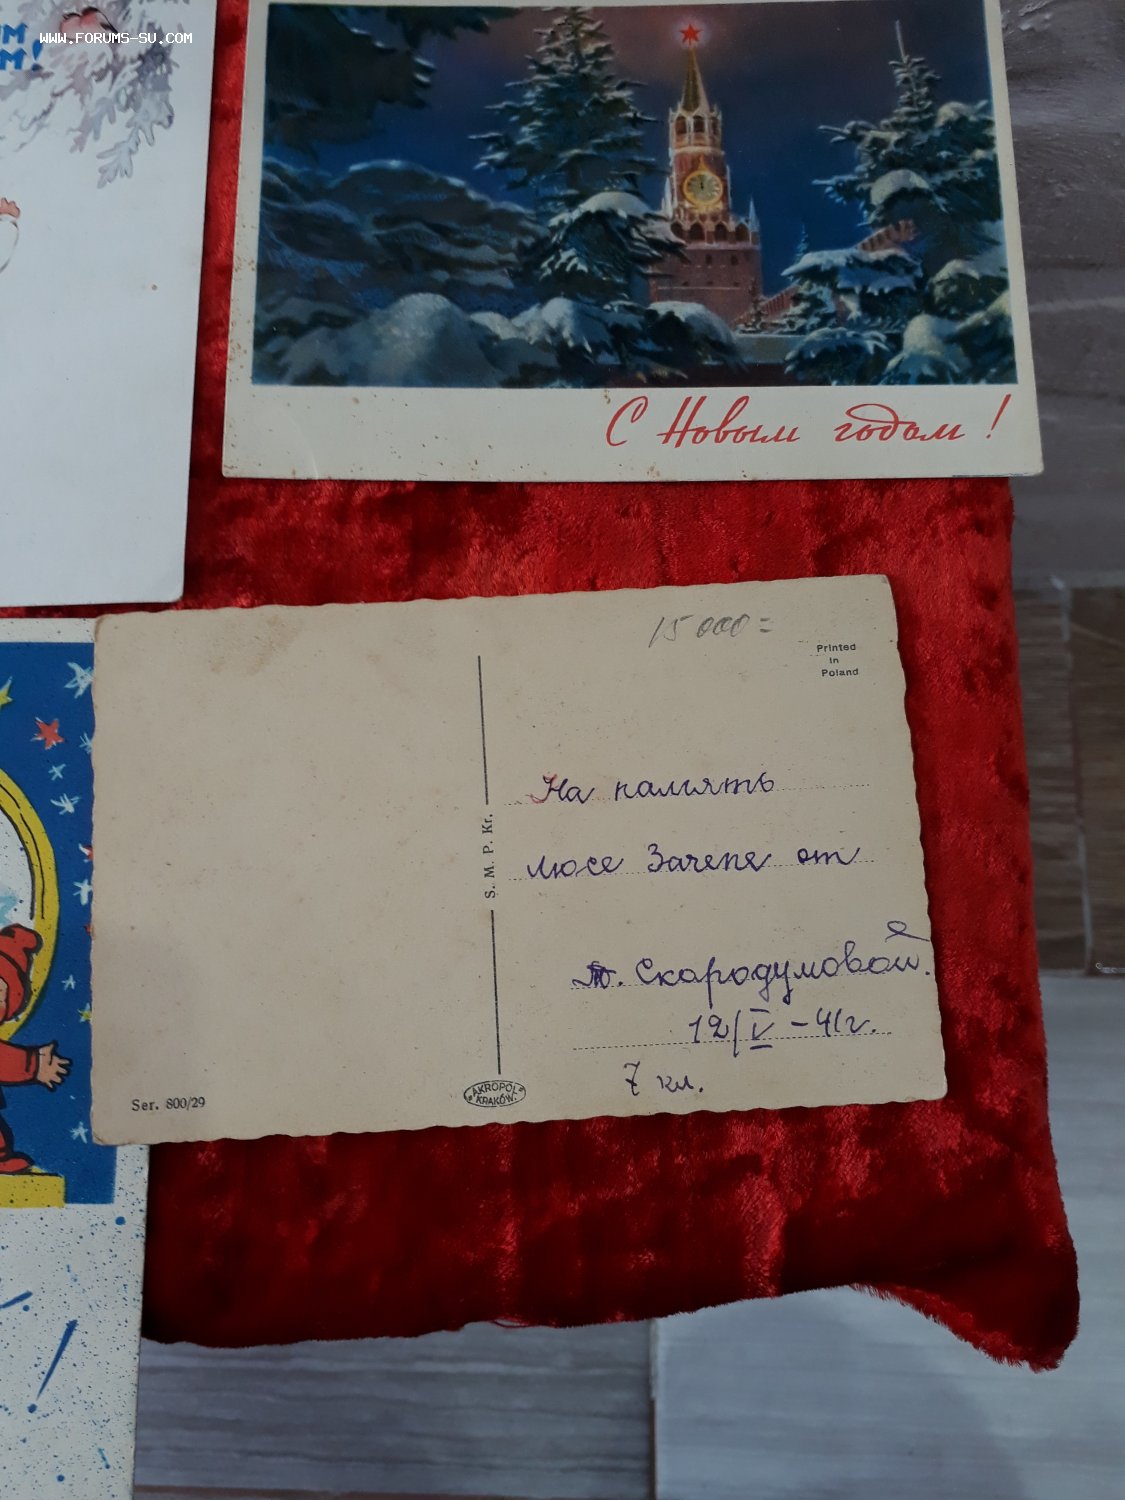 WWW.FORUMS-SU.COM
С Новым годом!
15000=
Printed
in
Poland
На память
Люсе Зачепе от
Т. Скародумовой.
12/V - 41г.
7 кл.
S. M. P. Kr.
AKROPOL
KRAKÓW.
Ser. 800/29